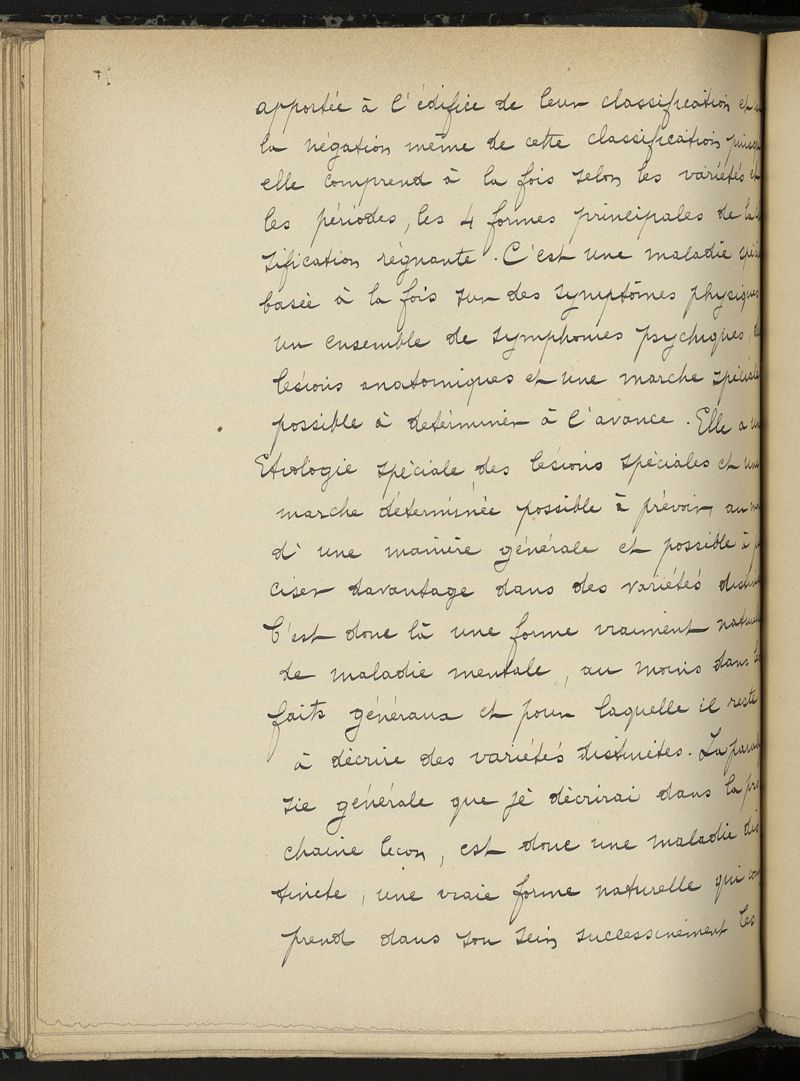 apportée à l'édifice de leur classification et
la négation même de cette classification puisqu
elle comprend à la fois selon les variétés et
les périodes, les 4 formes principales de la
sification régnante. C'est une maladie spéci
basée à la fois sur des symptômes physiques
un ensemble de symphomes psychiques,
lesions anatomiques et une marche spéciale
possible à detérminer à l'avance. Elle a un
Etiologie spéciale des lesions spéciales et une
marche déterminée possible à prévoir, au mo
d'une manière générale et possible à p
ciser davantage dans des variétés distin
C'est donc là une forme vraiment naturell
de maladie mentale, au moins dans les
faits généraux et pour laquelle il reste
à décrire des variétés distinctes. La paraly
sie générale que je décrirai dans la pro
chaine lecon, est donc une maladie dis
tincte, une vraie forme naturelle qui com
prend dans son sein successivement les